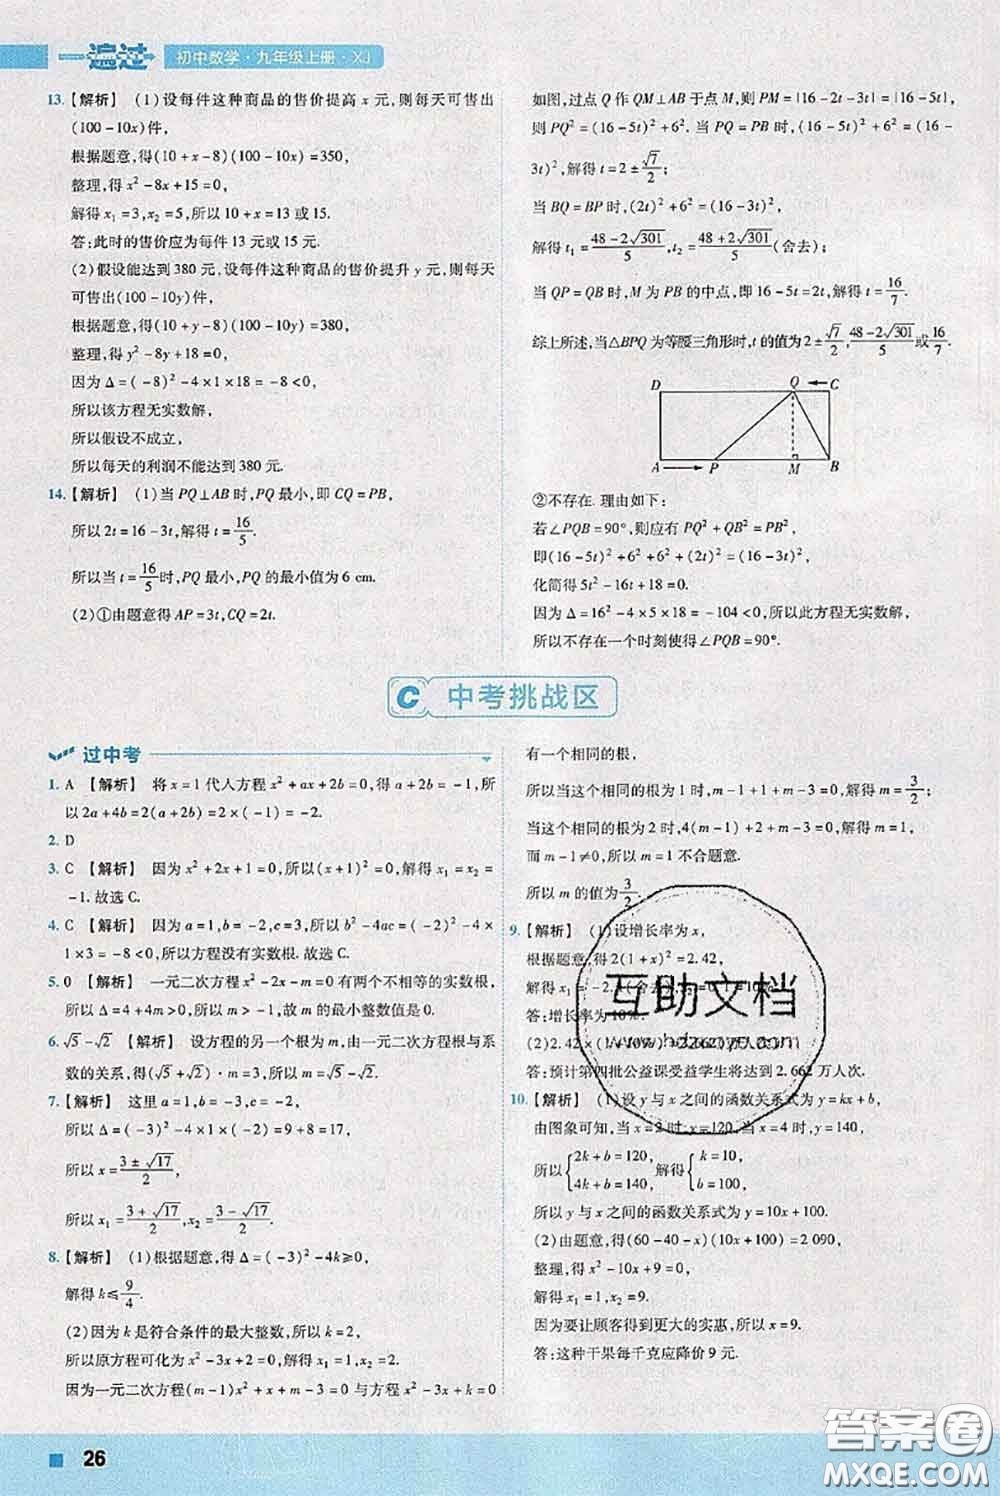 一遍过 初中数学·九年级上册·XJ
13.【解析】 (1)设每件这种商品的售价提高 x 元,则每天可售出
(100-10x)件,
根据题意,得(10+x-8)(100-10x)=350,
整理,得 x²-8x+15=0,
解得 x₁=3,x₂=5,所以 10+x=13 或 15.
答:此时的售价应为每件 13 元或 15 元.
(2)假设能达到 380 元,设每件这种商品的售价提升 y 元,则每天
可售出(100-10y)件,
根据题意,得(10+y-8)(100-10y)=380,
整理,得 y²-8y+18=0,
因为 Δ=(-8)²-4×1×18=-8<0,
所以该方程无实数解,
所以假设不成立,
所以每天的利润不能达到 380 元.
14.【解析】 (1)当 PQ⊥AB 时,PQ 最小,即 CQ=PB,
所以 2t=16-3t,解得 t=16/5.
所以当 t=16/5时,PQ 最小,PQ 的最小值为 6 cm.
(2)①由题意得 AP=3t,CQ=2t.
如图,过点 Q 作 QM⊥AB 于点 M,则 PM=|16-2t-3t|=|16-5t|,
则 PQ²=(16-5t)²+6². 当 PQ=PB 时,(16-5t)²+6²=(16-
3t)²,解得 t=2±√7/2;
当 BQ=BP 时,(2t)²+6²=(16-3t)²,
解得 t₁=(48-2√301)/5,t₂=(48+2√301)/5(舍去);
当 QP=QB 时,M 为 PB 的中点,即 16-5t=2t,解得 t=16/7.
综上所述,当△BPQ 为等腰三角形时,t 的值为 2±√7/2,(48-2√301)/5或16/7.
D Q C
A P M B
②不存在. 理由如下:
若∠PQB=90°,则应有 PQ²+QB²=PB²,
即(16-5t)²+6²+6²+(2t)²=(16-3t)²,
化简得 5t²-16t+18=0.
因为 Δ=16²-4×5×18=-104<0,所以此方程无实数解,
所以不存在一个时刻使得∠PQB=90°.
C 中考挑战区
过中考
1. A 【解析】 将 x=1 代入方程 x²+ax+2b=0,得 a+2b=-1,所
以 2a+4b=2(a+2b)=2×(-1)=-2.
2. D
3. C 【解析】 因为 x²+2x+1=0,所以(x+1)²=0,解得 x₁=x₂=
-1. 故选 C.
4. C 【解析】 因为 a=1,b=-2,c=3,所以 b²-4ac=(-2)²-4×
1×3=-8<0,所以方程没有实数根. 故选 C.
5. 0 【解析】 一元二次方程 x²-2x-m=0 有两个不相等的实数根,
所以 Δ=4+4m>0,所以 m>-1,故 m 的最小整数值是 0.
6. √5-√2 【解析】 设方程的另一个根为 m,由一元二次方程根与系
数的关系,得(√5+√2)·m=3,解得 m=√5-√2.
7.【解析】 这里 a=1,b=-3,c=-2,
所以 Δ=(-3)²-4×1×(-2)=9+8=17,
所以 x=(3±√17)/2,
所以 x₁=(3+√17)/2,x₂=(3-√17)/2.
8.【解析】 (1)根据题意,得 Δ=(-3)²-4k≥0,
解得 k≤9/4.
(2)因为 k 是符合条件的最大整数,所以 k=2,
所以原方程可化为 x²-3x+2=0,解得 x₁=1,x₂=2.
因为一元二次方程(m-1)x²+x+m-3=0 与方程 x²-3x+k=0
有一个相同的根,
所以当这个相同的根为 1 时,m-1+1+m-3=0,解得 m=3/2;
当这个相同的根为 2 时,4(m-1)+2+m-3=0,解得 m=1,
而 m-1≠0,所以 m=1 不合题意.
所以 m 的值为3/2.
9.【解析】 (1)设增长率为 x,
根据题意,得 2(1+x)²=2.42,
解得 x₁=-2.1(舍去),x₂=0.1=10%.
答:增长率为 10%.
(2)2.42×(1+10%)=2.662(万人次).
答:预计第四批公益课受益学生将达到 2.662 万人次.
10.【解析】 (1)设 y 与 x 之间的函数关系式为 y=kx+b,
由图象可知,当 x=2 时,x=120,当 x=4 时,y=140,
所以{2k+b=120, 4k+b=140, 解得{k=10, b=100,
所以 y 与 x 之间的函数关系式为 y=10x+100.
(2)由题意,得(60-40-x)(10x+100)=2 090,
整理,得 x²-10x+9=0,
解得 x₁=1,x₂=9.
因为要让顾客得到更大的实惠,所以 x=9.
答:这种干果每千克应降价 9 元.
互助文档
26
答案圈
MXQE.COM